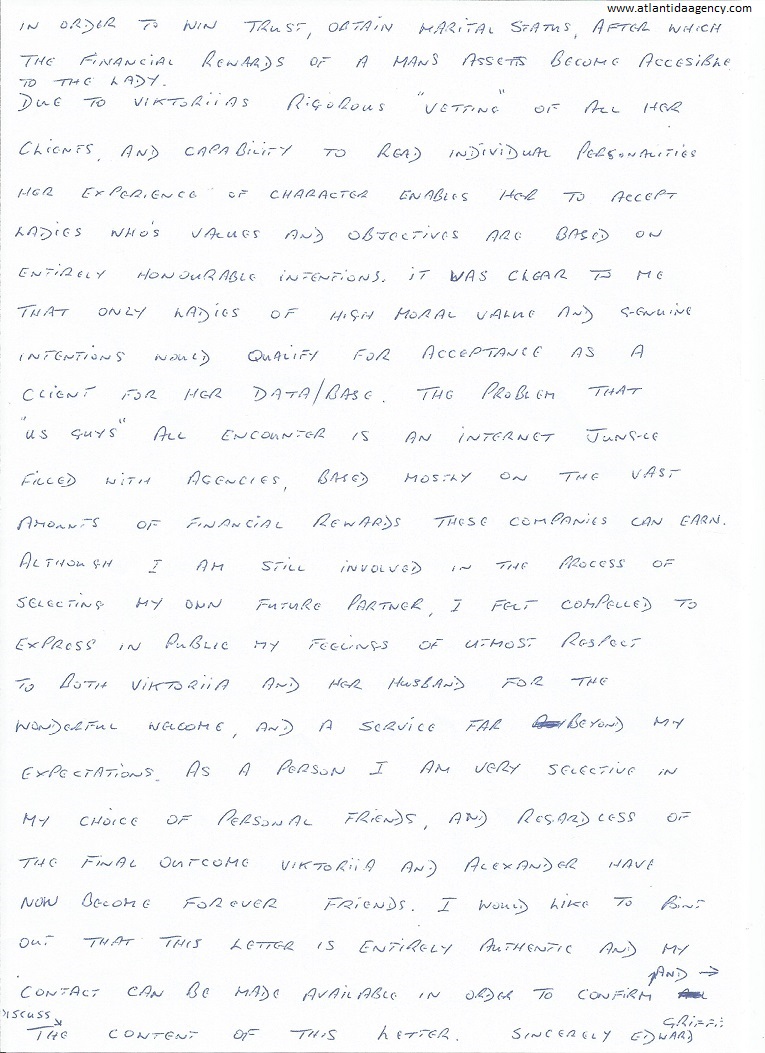 www.atlantidaagency.com
IN ORDER TO WIN TRUST, OBTAIN MARITAL STATUS, AFTER WHICH
THE FINANCIAL REWARDS OF A MANS ASSETS BECOME ACCESIBLE
TO THE LADY.
DUE TO VIKTORIIAS RIGOROUS "VETTING" OF ALL HER
CLIENTS, AND CAPABILITY TO READ INDIVIDUAL PERSONALITIES
HER EXPERIENCE OF CHARACTER ENABLES HER TO ACCEPT
LADIES WHO'S VALUES AND OBJECTIVES ARE BASED ON
ENTIRELY HONOURABLE INTENTIONS. IT WAS CLEAR TO ME
THAT ONLY LADIES OF HIGH MORAL VALUE AND GENUINE
INTENTIONS WOULD QUALIFY FOR ACCEPTANCE AS A
CLIENT FOR HER DATA/BASE. THE PROBLEM THAT
"US GUYS" ALL ENCOUNTER IS AN INTERNET JUNGLE
FILLED WITH AGENCIES, BASED MOSTLY ON THE VAST
AMOUNTS OF FINANCIAL REWARDS THESE COMPANIES CAN EARN.
ALTHOUGH I AM STILL INVOLVED IN THE PROCESS OF
SELECTING MY OWN FUTURE PARTNER, I FELT COMPELLED TO
EXPRESS IN PUBLIC MY FEELINGS OF UTMOST RESPECT
TO BOTH VIKTORIIA AND HER HUSBAND FOR THE
WONDERFUL WELCOME, AND A SERVICE FAR BEYOND MY
EXPECTATIONS. AS A PERSON I AM VERY SELECTIVE IN
MY CHOICE OF PERSONAL FRIENDS, AND REGARDLESS OF
THE FINAL OUTCOME VIKTORIIA AND ALEXANDER HAVE
NOW BECOME FOREVER FRIENDS. I WOULD LIKE TO POINT
OUT THAT THIS LETTER IS ENTIRELY AUTHENTIC AND MY
AND →
CONTACT CAN BE MADE AVAILABLE IN ORDER TO CONFIRM
ISCUSS
THE CONTENT OF THIS LETTER. SINCERELY EDWARD